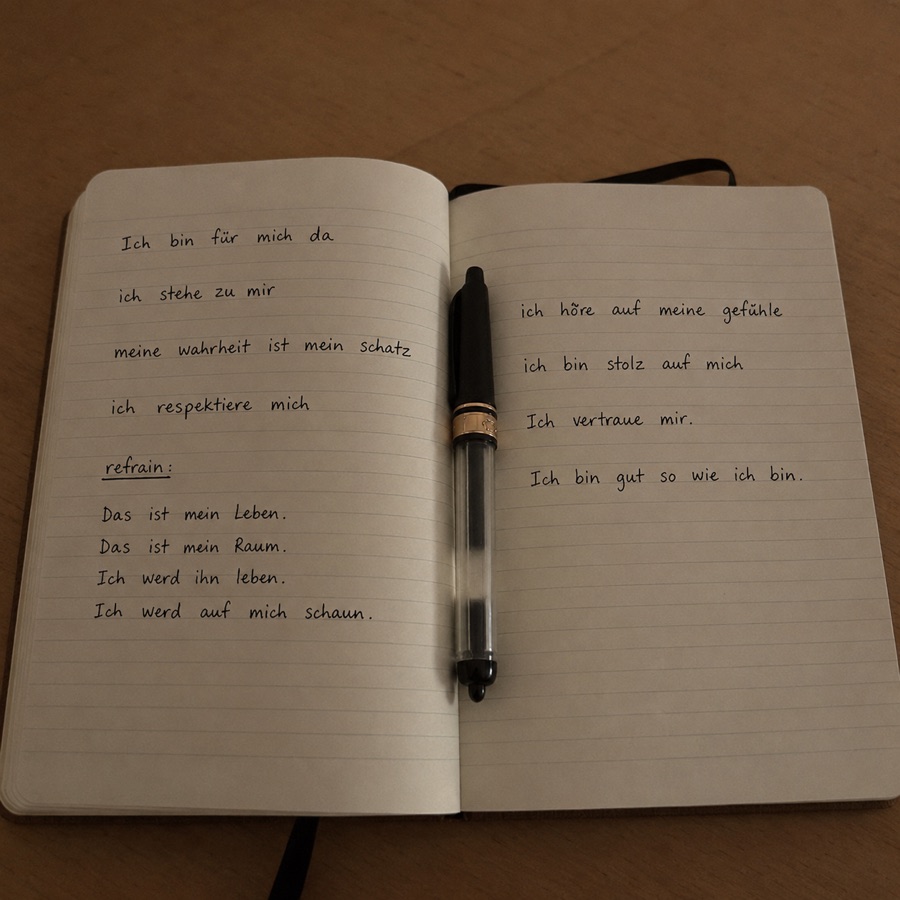 Ich bin für mich da
ich stehe zu mir
meine wahrheit ist mein schatz
ich respektiere mich
refrain:
Das ist mein Leben.
Das ist mein Raum.
Ich werd ihn leben.
Ich werd auf mich schaun.
ich höre auf meine gefühle
ich bin stolz auf mich
Ich vertraue mir.
Ich bin gut so wie ich bin.